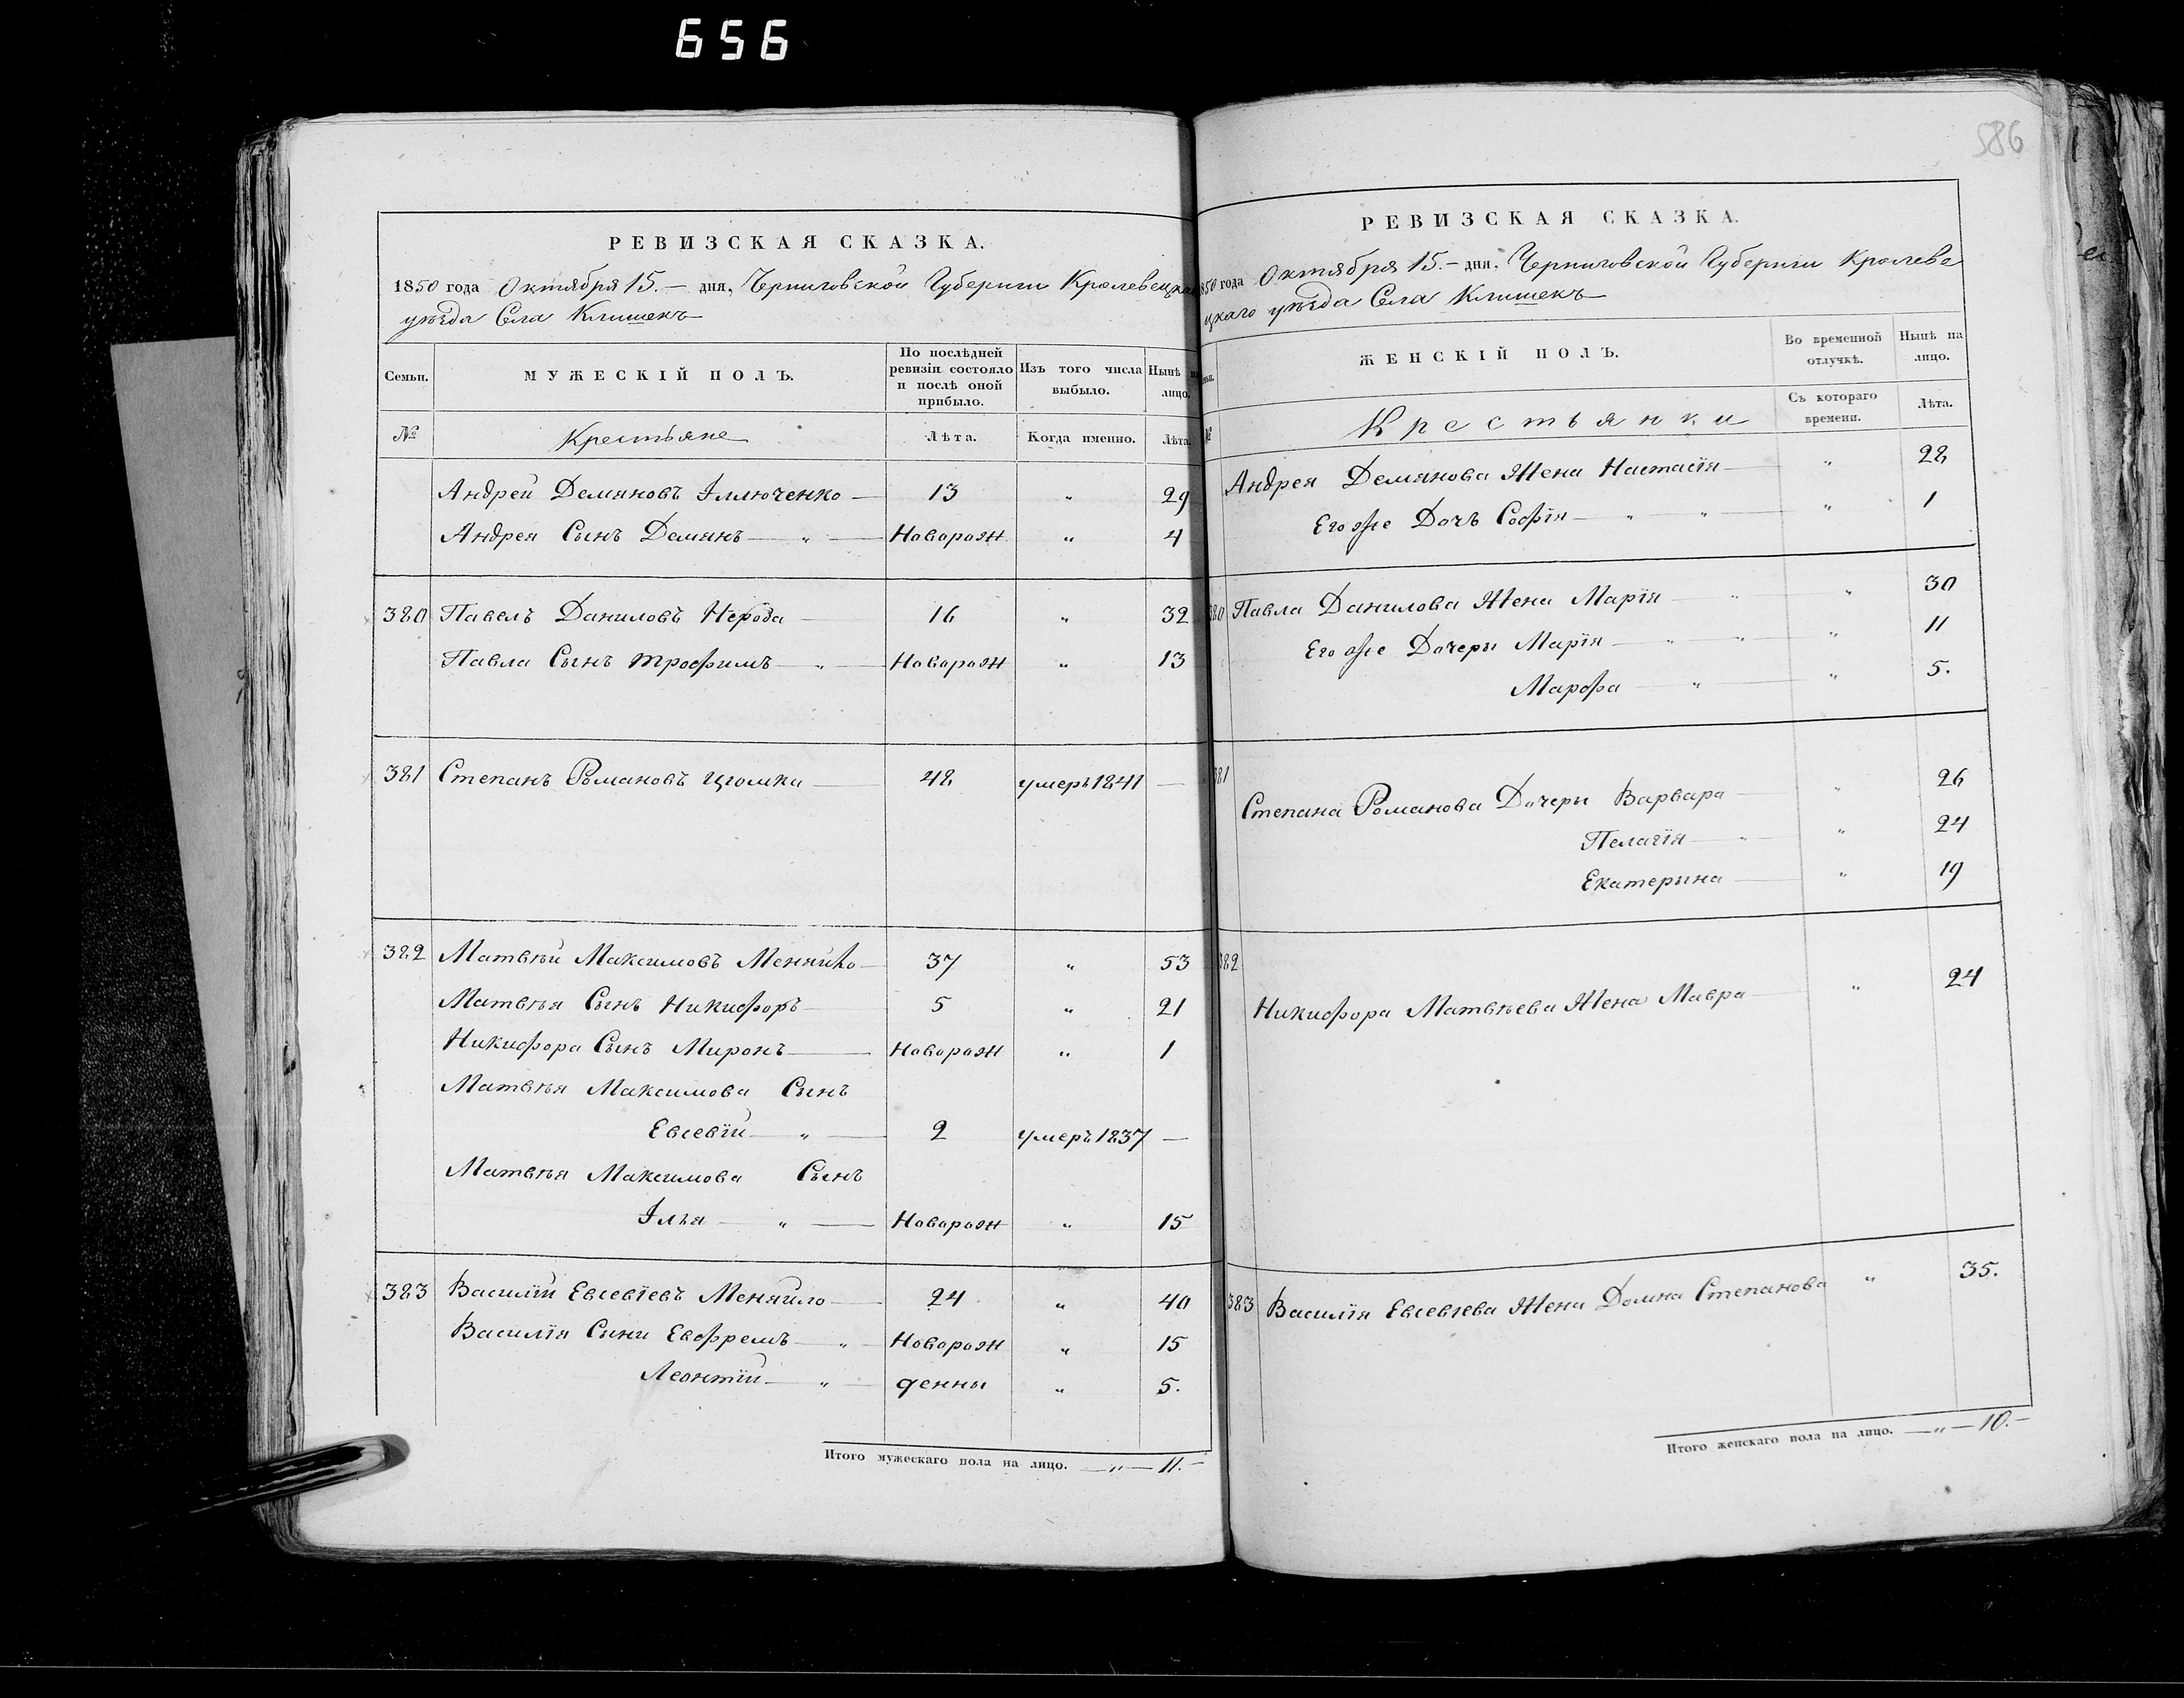 656
586
РЕВИЗСКАЯ СКАЗКА.
1850 года Октября 15.— дня, Черниговской Губернии Кролевецка
уѣзда Села Клишекъ
Семьи.
МУЖЕСКІЙ ПОЛЪ.
По послѣдней ревизіи состояло и послѣ оной прибыло.
Изъ того числа выбыло.
Нынѣ на лицо.
№
Крестьяне
Лѣта.
Когда именно.
Лѣта.
Андрей Демяновъ Іллюченко — 13 „ 29
Андрея Сынъ Демянъ — „ — Новорож „ 4
380 Павелъ Даниловъ Нерода — 16 „ 32
Павла Сынъ Трофимъ — „ — Новорож „ 13
381 Степанъ Романовъ — 48 умеръ 1841 —
382 Матвѣй Максимовъ Меняйло — 37 „ 53
Матвѣя Сынъ Никифоръ — 5 „ 21
Никифора Сынъ Миронъ — Новорож „ 1
Матвѣя Максимова Сынъ
Евсевій — „ — 2 умеръ 1837 —
Матвѣя Максимова Сынъ
Ілья — „ — Новорож „ 15
383 Василій Евсевіевъ Меняйло — 24 „ 40
Василія Сыни Евфремъ — „ — Новорож „ 15
Леонтій — „ — денны „ 5.
Итого мужескаго пола на лицо. — „ — 11. —
РЕВИЗСКАЯ СКАЗКА.
850 года Октября 15.— дня, Черниговской Губернии Кролеве
цкаго уѣзда Села Клишекъ
ЖЕНСКІЙ ПОЛЪ.
Во временной отлучкѣ.
Нынѣ на лицо.
№
Крестьянки
Съ котораго времени.
Лѣта.
Андрея Демянова Жена Настасія — „ 28
Его же Дочь Софія — „ — „ — „ 1
380 Павла Данилова Жена Марія — „ — „ 30
Его же Дочеры Марія — „ — „ — „ 11
Марфа — „ — „ 5.
381
Степана Романова Дочеры Варвара — „ 26
Пелагія — „ — „ 24
Екатерына — „ 19
382
Никифора Матвѣева Жена Мавра — „ 24
383 Василія Евсевіева Жена Домна Степанова „ 35.
Итого женскаго пола на лицо. — „ — 10. —